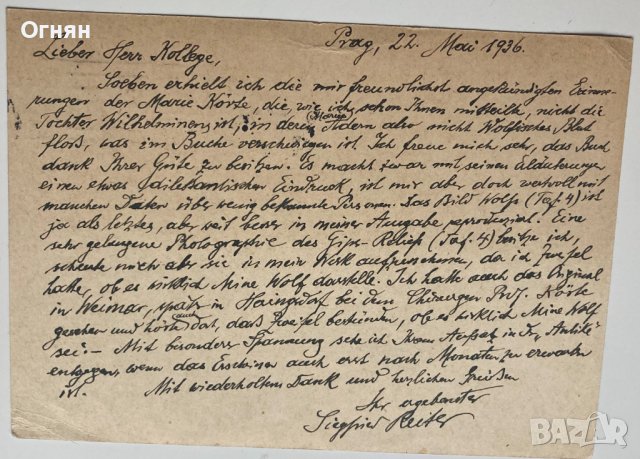 Огнян
Prag, 22. Mai 1936.
Lieber Herr Kollege,
Soeben erhielt ich die mir freundlichst angekündigten Erinne-
rungen der Marie Körte, die, wie ich schon Ihnen mitteilte, nicht die
Tochter Wilhelminens ist, in deren Adern also nicht Wolfisches Blut
floß, was im Buche verschwiegen ist. Ich freue mich sehr, das Buch
dank Ihrer Güte zu besitzen. Es macht zwar mit seinen Erläuterungen
einen etwas dilettantischen Eindruck, ist mir aber doch wertvoll mit
manchen Daten über wenig bekannte Personen. Das Bild Wolfs (Taf. 4) ist
ja als letztes, aber weit besser in meiner Ausgabe reproduziert. Eine
sehr gelungene Photographie des Gips-Reliefs (Taf. 4) besitze ich,
scheute mich aber sie in mein Werk aufzunehmen, da ich Zweifel
hatte, ob es wirklich Mine Wolf darstelle. Ich hatte auch das Original
in Weimar, später in bei dem Chirurgen Prof. Körte
gesehen und hörte auch dort, daß Zweifel bestünden, ob es wirklich Mine Wolf
sei. – Mit besonderer Spannung sehe ich Ihrem Aufsatz in der „Antike“
entgegen, wenn das Erscheinen auch erst nach Monaten zu erwarten
ist. Mit wiederholtem Dank und herzlichen Grüßen
Ihr ergebenster
Siegfried Reiter
BAZAR